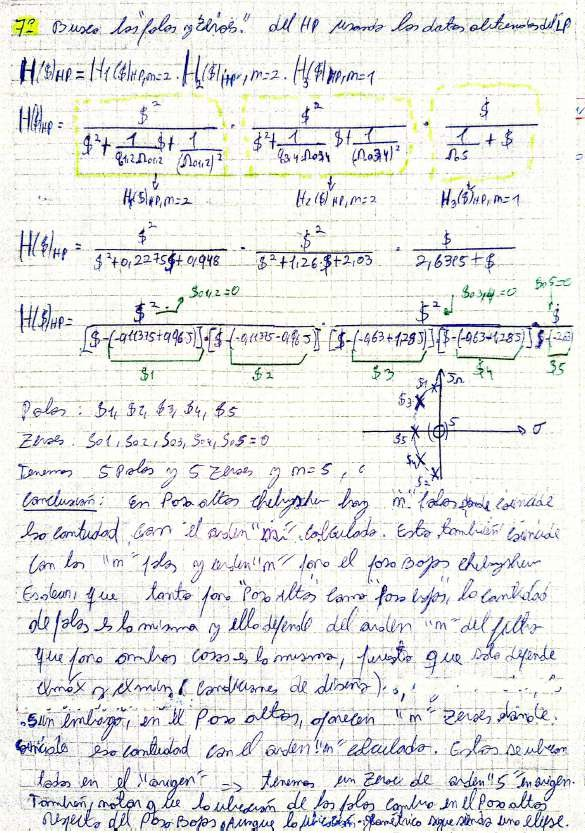 7º Busco los "polos y zeros" del HP usando los datos obtenidos del LP
H($)HP = H1($)HP,m=2 . H2($)HP, m=2 . H3($)HP, m=1
H($)HP = $² / ($² + 1/(q1,2 Ω01,2) $ + 1/(Ω01,2)²) . $² / ($² + 1/(q3,4 Ω03,4) $ + 1/(Ω03,4)²) . $ / (1/Ω05 + $)
H1($)HP, m=2 H2($)HP, m=2 H3($)HP, m=1
H($)HP = $² / ($² + 0,2275$ + 0,948) . $² / ($² + 1,26.$ + 2,03) . $ / (2,6315 + $)
$01,2=0 $03,4=0 $05=0
H($)HP = $² / ([$-(-0,11375+0,96J)].[$-(-0,11375-0,96J)]) . $² / ([$-(-0,63+1,28J)].[$-(-0,63-1,28J)]) . $
$1 $2 $3 $4 $5
Polos: $1, $2, $3, $4, $5
Zeros: $01, $02, $03, $04, $05=0
$1 JΩ
$3
$5 5 σ
$4
$2
Tenemos 5 Polos y 5 Zeros y m=5
Conclusión: en Paso altos Chebyshev hay "m" polos donde coincide
esa cantidad con el orden "m" calculado. Esto también coincide
con los "m" polos y orden "m" para el paso Bajos Chebyshev
Es decir, que tanto para "Paso Altos" como "Paso bajos", la cantidad
de polos es la misma y ello depende del orden "m" del filtro
que para ambos casos es lo mismo, puesto que solo depende
αmáx y αmin (condiciones de diseño).
Sin embargo, en el Paso altos, aparecen "m" zeros donde
coincide esa cantidad con el orden "m" calculado. Estos se ubican
todos en el "origen" => tenemos un Zero de orden "5" en origen.
También, notar que la ubicación de los polos cambia en el Paso altos
respecto del Paso Bajos, aunque la ubicación geométrica sigue siendo una elipse.